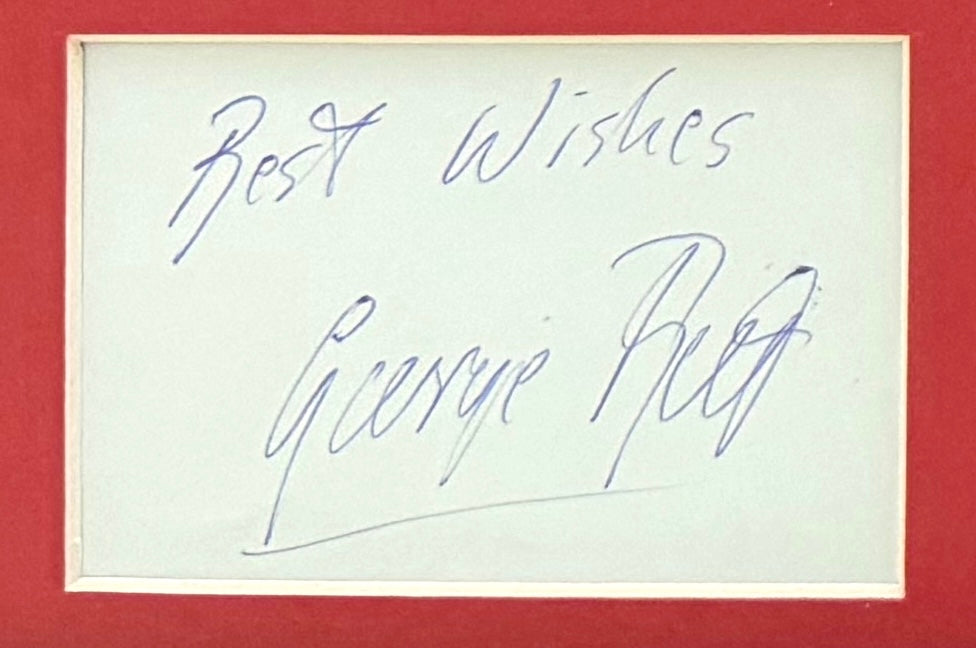 Best Wishes
George Raft